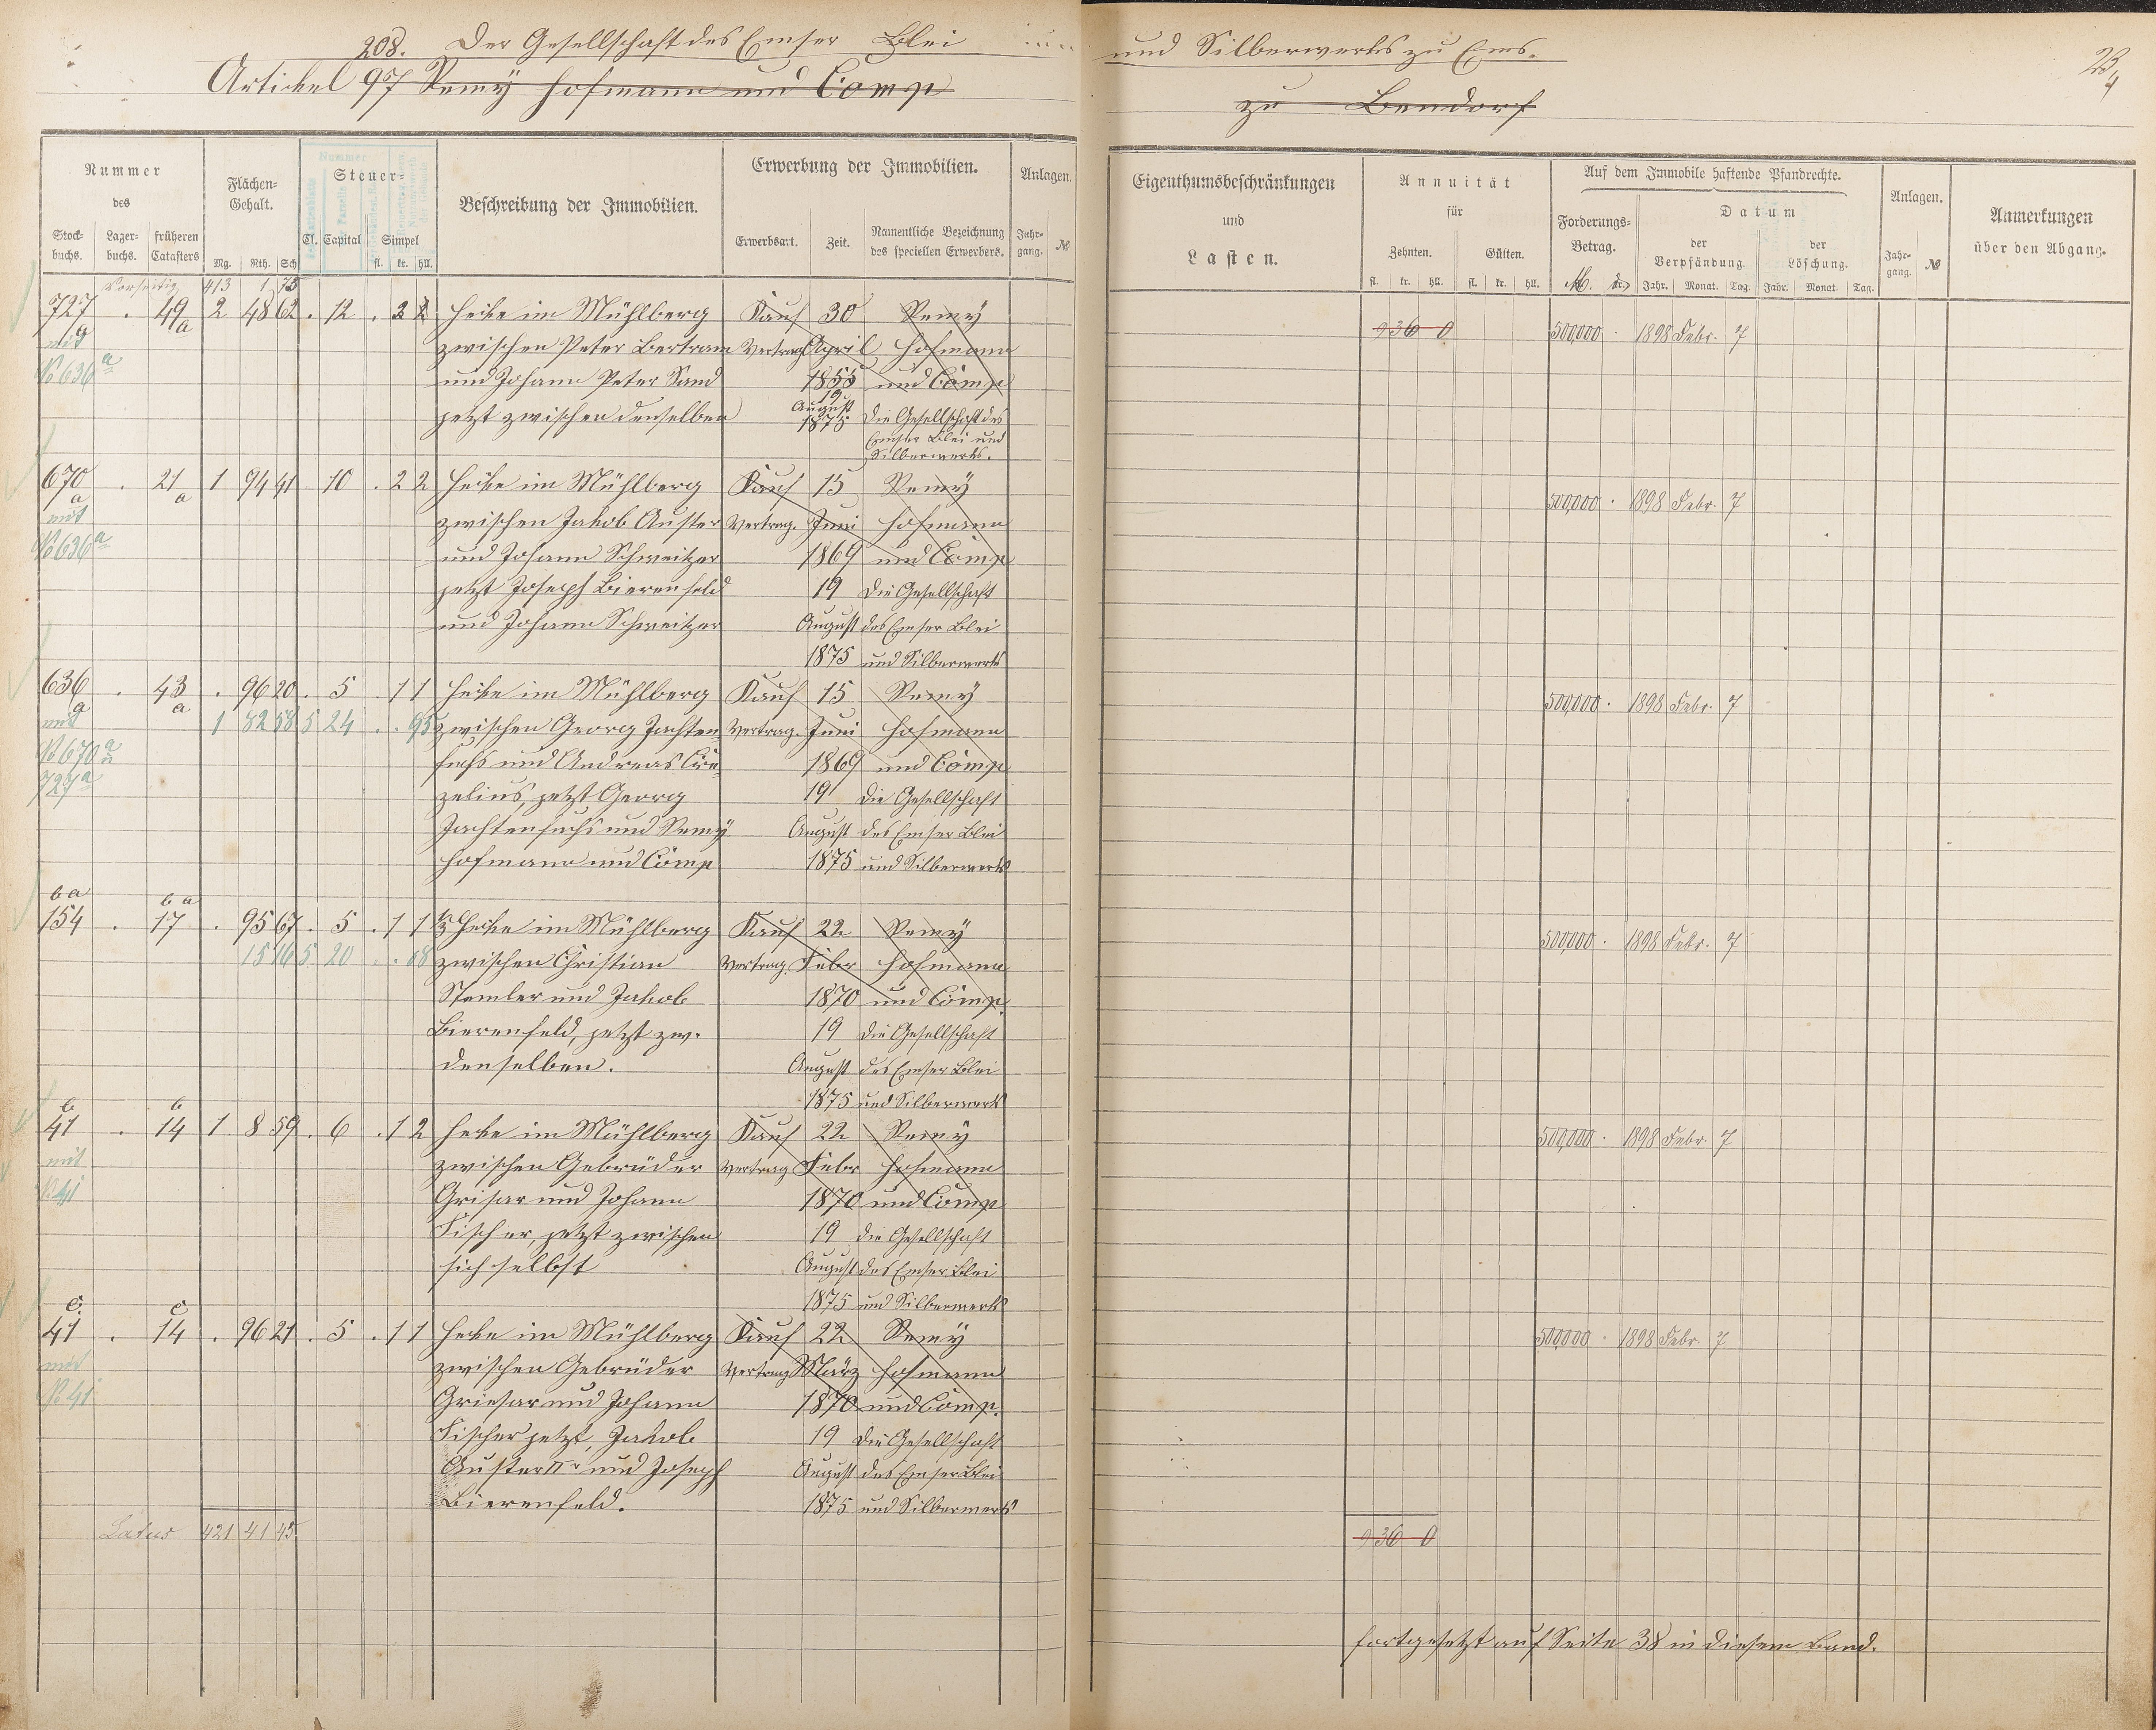 208. Der Gesellschaft des Emser Blei und Silberwerks zu Ems.
Artikel 97 Remy Hofmann und Comp zu Bendorf
Nummer des
Stockbuchs.
Lagerbuchs.
früheren Catasters
Flächen-Gehalt.
Mg. Rth. Sch
Steuer-
Cl. Capital Simpel
fl. kr. hll.
Beschreibung der Immobilien.
Erwerbung der Immobilien.
Erwerbsart.
Zeit.
Namentliche Bezeichnung des speciellen Erwerbers.
Anlagen.
Jahrgang. №
Eigenthumsbeschränkungen
und
Lasten.
Annuität
für
Zehnten.
Gülten.
fl. kr. hll. fl. kr. hll.
Auf dem Immobile haftende Pfandrechte.
Forderungs-Betrag.
Datum
der Verpfändung
der Löschung.
Jahr. Monat. Tag. Jahr. Monat. Tag.
Anlagen.
Jahrgang. №
Anmerkungen
über den Abgang.
Vorseitig 413 1 75
727 a . 49 a 2 48 62 . 12 . 3 2 Hecke im Mühlberg Kauf 30 Remy 9 36 0 500,000 . 1898 Febr. 7
mit zwischen Peter Bertram Vertrag April Hofmann
No 636 a und Johann Peter Sand 1855 und Comp
jetzt zwischen denselben 19 August 1875 Die Gesellschaft des
Emser Blei und
Silberwerks.
670 a . 21 a 1 94 41 10 . 2 2 Hecke im Mühlberg Kauf 15 Remy 500,000 . 1898 Febr. 7
mit zwischen Jakob Auster Vertrag. Juni Hofmann
No 636 a und Johann Schweitzer 1869 und Comp
jetzt Joseph Bierenfeld 19 Die Gesellschaft
und Johann Schweitzer August des Emser Blei
1875 und Silberwerks
636 a . 43 a . 96 20 . 5 . 1 1 Hecke im Mühlberg Kauf 15 Remy 500,000 . 1898 Febr. 7
mit 1 82 58 5 24 . . 95 zwischen Georg Jachten Vertrag. Juni Hofmann
No 670 a fuchs und Andreas 1869 und Comp
727 a zelius, jetzt Georg 19 Die Gesellschaft
Jachtenfuchs und Remy August des Emser Blei
Hofmann und Comp 1875 und Silberwerks
b a b a
154 . 17 . 95 67 . 5 . 1 1 Hecke im Mühlberg Kauf 22 Remy 500,000 . 1898 Febr. 7
15 16 5 20 . . 68 zwischen Christian Vertrag. Febr Hofmann
Stemler und Jakob 1870 und Comp.
Bierenfeld, jetzt zw. 19 Die Gesellschaft
denselben. August des Emser Blei
1875 und Silberwerks
b b
41 . 14 1 8 59 . 6 . 1 2 Hecke im Mühlberg Kauf 22 Remy 500,000 . 1898 Febr 7
mit zwischen Gebrüder Vertrag Febr Hofmann
No 41 Grisar und Johann 1870 und Comp
Fischer, jetzt zwischen 19 die Gesellschaft
sich selbst August des Emser Blei
1875 und Silberwerks
c. c
41 . 14 . 96 21 . 5 . 1 1 Hecke im Mühlberg Kauf 22 Remy 500,000 . 1898 Febr. 7
mit zwischen Gebrüder Vertrag März Hofmann
No 41 Griesar und Johann 1870 und Comp.
Fischer jetzt, Jakob 19 Die Gesellschaft
Auster IIr und Joseph August des Emser Blei
Bierenfeld. 1875 und Silberwerks
Latus 421 41 45 9 36 0
fortgesetzt auf Seite 38 in diesem Band.